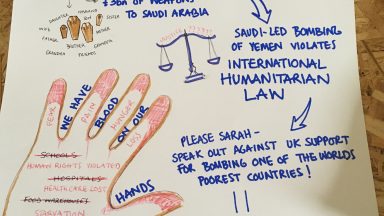 £3bn OF WEAPONS
TO SAUDI ARABIA
DAUGHTER
HUSBAND
SON
SISTER
MOTHER
FATHER
BROTHER
GRANDPA
GRANDMA
FRIENDS
SAUDI-LED BOMBING
OF YEMEN VIOLATES
INTERNATIONAL
HUMANITARIAN
LAW
FEAR
WE HAVE
PAIN
BLOOD
HUNGER
ON OUR
LOSS
HANDS
SCHOOLS
HUMAN RIGHTS VIOLATED
HOSPITALS
HEALTHCARE LOST
FOOD WAREHOUSES
STARVATION
PLEASE SARAH -
SPEAK OUT AGAINST UK SUPPORT
FOR BOMBING ONE OF THE WORLDS
POOREST COUNTRIES!